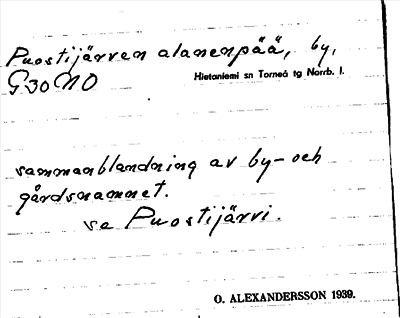 Puostijärven alanenpää, by,
G30 NO
Hietaniemi sn Torneå tg Norrb. l.
sammanblandning av by- och
gårdsnamnet.
se Puostijärvi.
O. ALEXANDERSSON 1939.